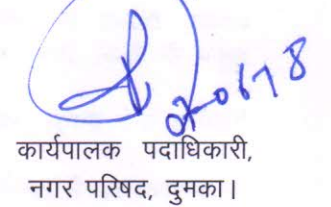 कार्यपालक पदाधिकारी,
नगर परिषद, दुमका।